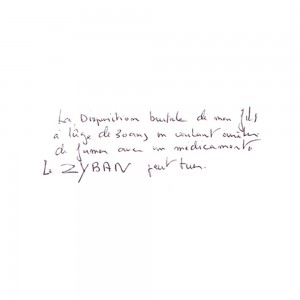 La Disparition brutale de mon fils
à l'âge de 30 ans en voulant arrêter
de fumer avec un médicament.
Le ZYBAN peut tuer.